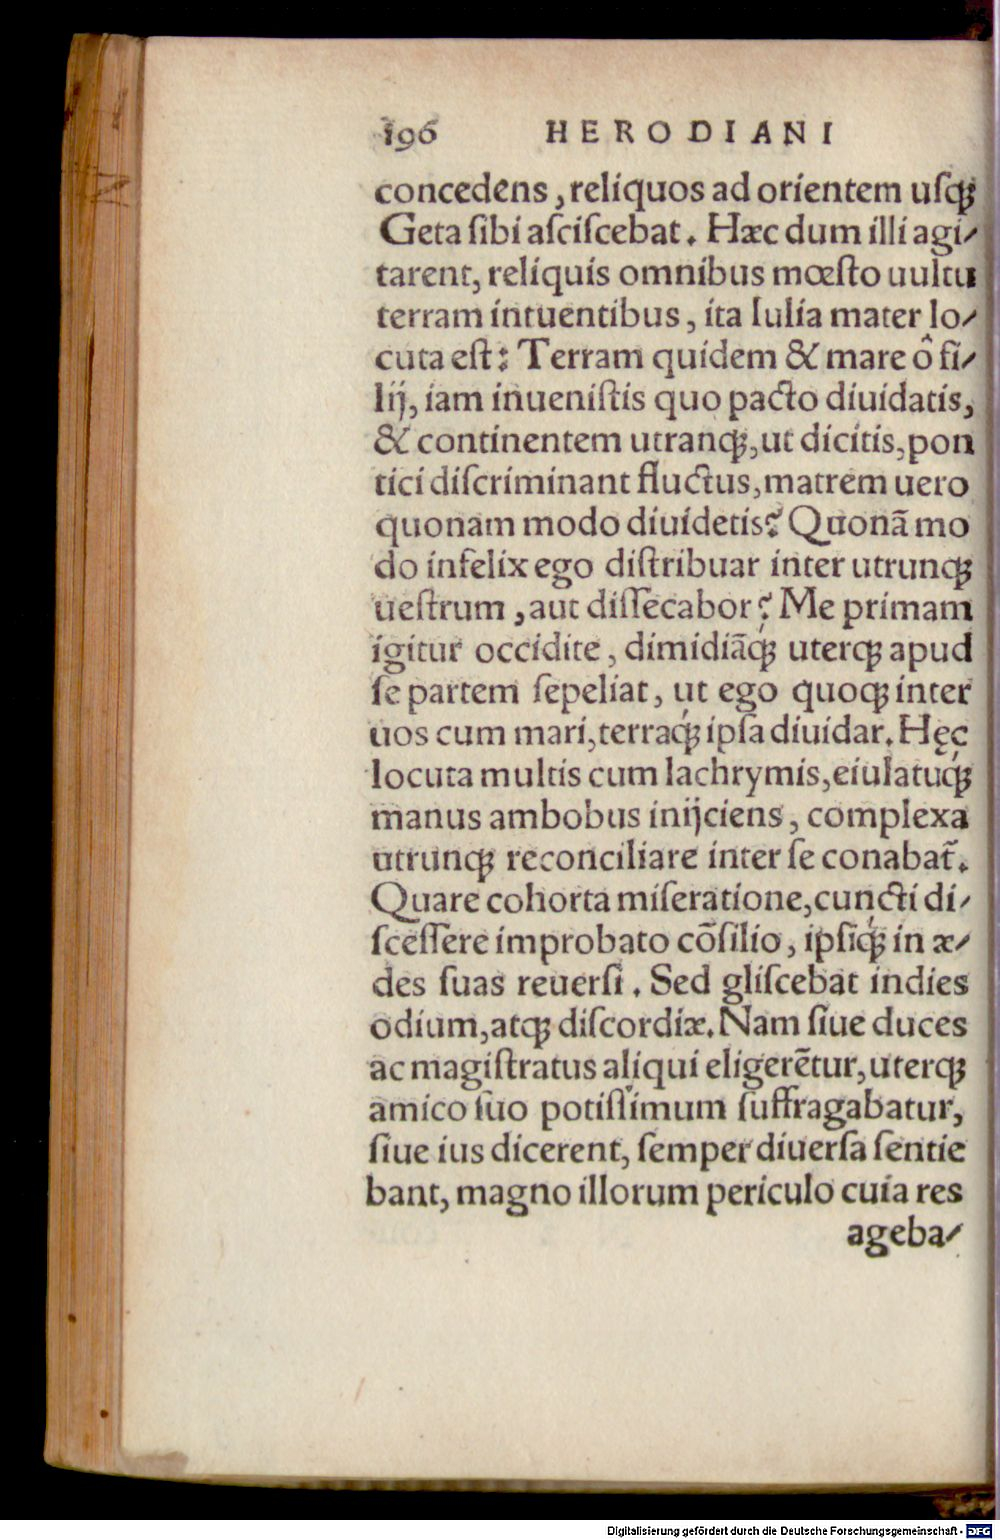 196 HERODIANI
concedens, reliquos ad orientem uſqꝫ
Geta ſibi aſciſcebat. Hæc dum illi agi⸗
tarent, reliquis omnibus mœſto uultu
terram intuentibus, ita Iulia mater lo⸗
cuta eſt: Terram quidem & mare ô fi⸗
lij, iam inueniſtis quo pacto diuidatis,
& continentem utranqꝫ, ut dicitis, pon
tici diſcriminant fluctus, matrem uero
quonam modo diuidetis? Quonã mo
do infelix ego diſtribuar inter utrunqꝫ
ueſtrum, aut diſſecabor? Me primam
igitur occidite, dimidiãq́ꝫ uterqꝫ apud
ſe partem ſepeliat, ut ego quoqꝫ inter
uos cum mari, terraq́ꝫ ipſa diuidar. Hęc
locuta multis cum lachrymis, eiulatuq́ꝫ
manus ambobus inijciens, complexa
utrunqꝫ reconciliare inter ſe conabat᷑.
Quare cohorta miſeratione, cuncti di⸗
ſceſſere improbato cõſilio, ipſiq́ꝫ in æ⸗
des ſuas reuerſi. Sed gliſcebat indies
odium, atqꝫ diſcordiæ. Nam ſiue duces
ac magiſtratus aliqui eligerẽtur, uterqꝫ
amico ſuo potiſſimum ſuffragabatur,
ſiue ius dicerent, ſemper diuerſa ſentie
bant, magno illorum periculo cuia res
ageba⸗
Digitalisierung gefördert durch die Deutsche Forschungsgemeinschaft - DFG